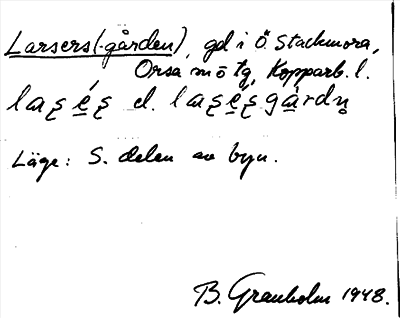 Larsers(-gården), gd i Ö. Stackmora,
Orsa sn ö tg, Kopparb. l.
el.
Läge: S. delen av byn.
B. Granholm 1948.